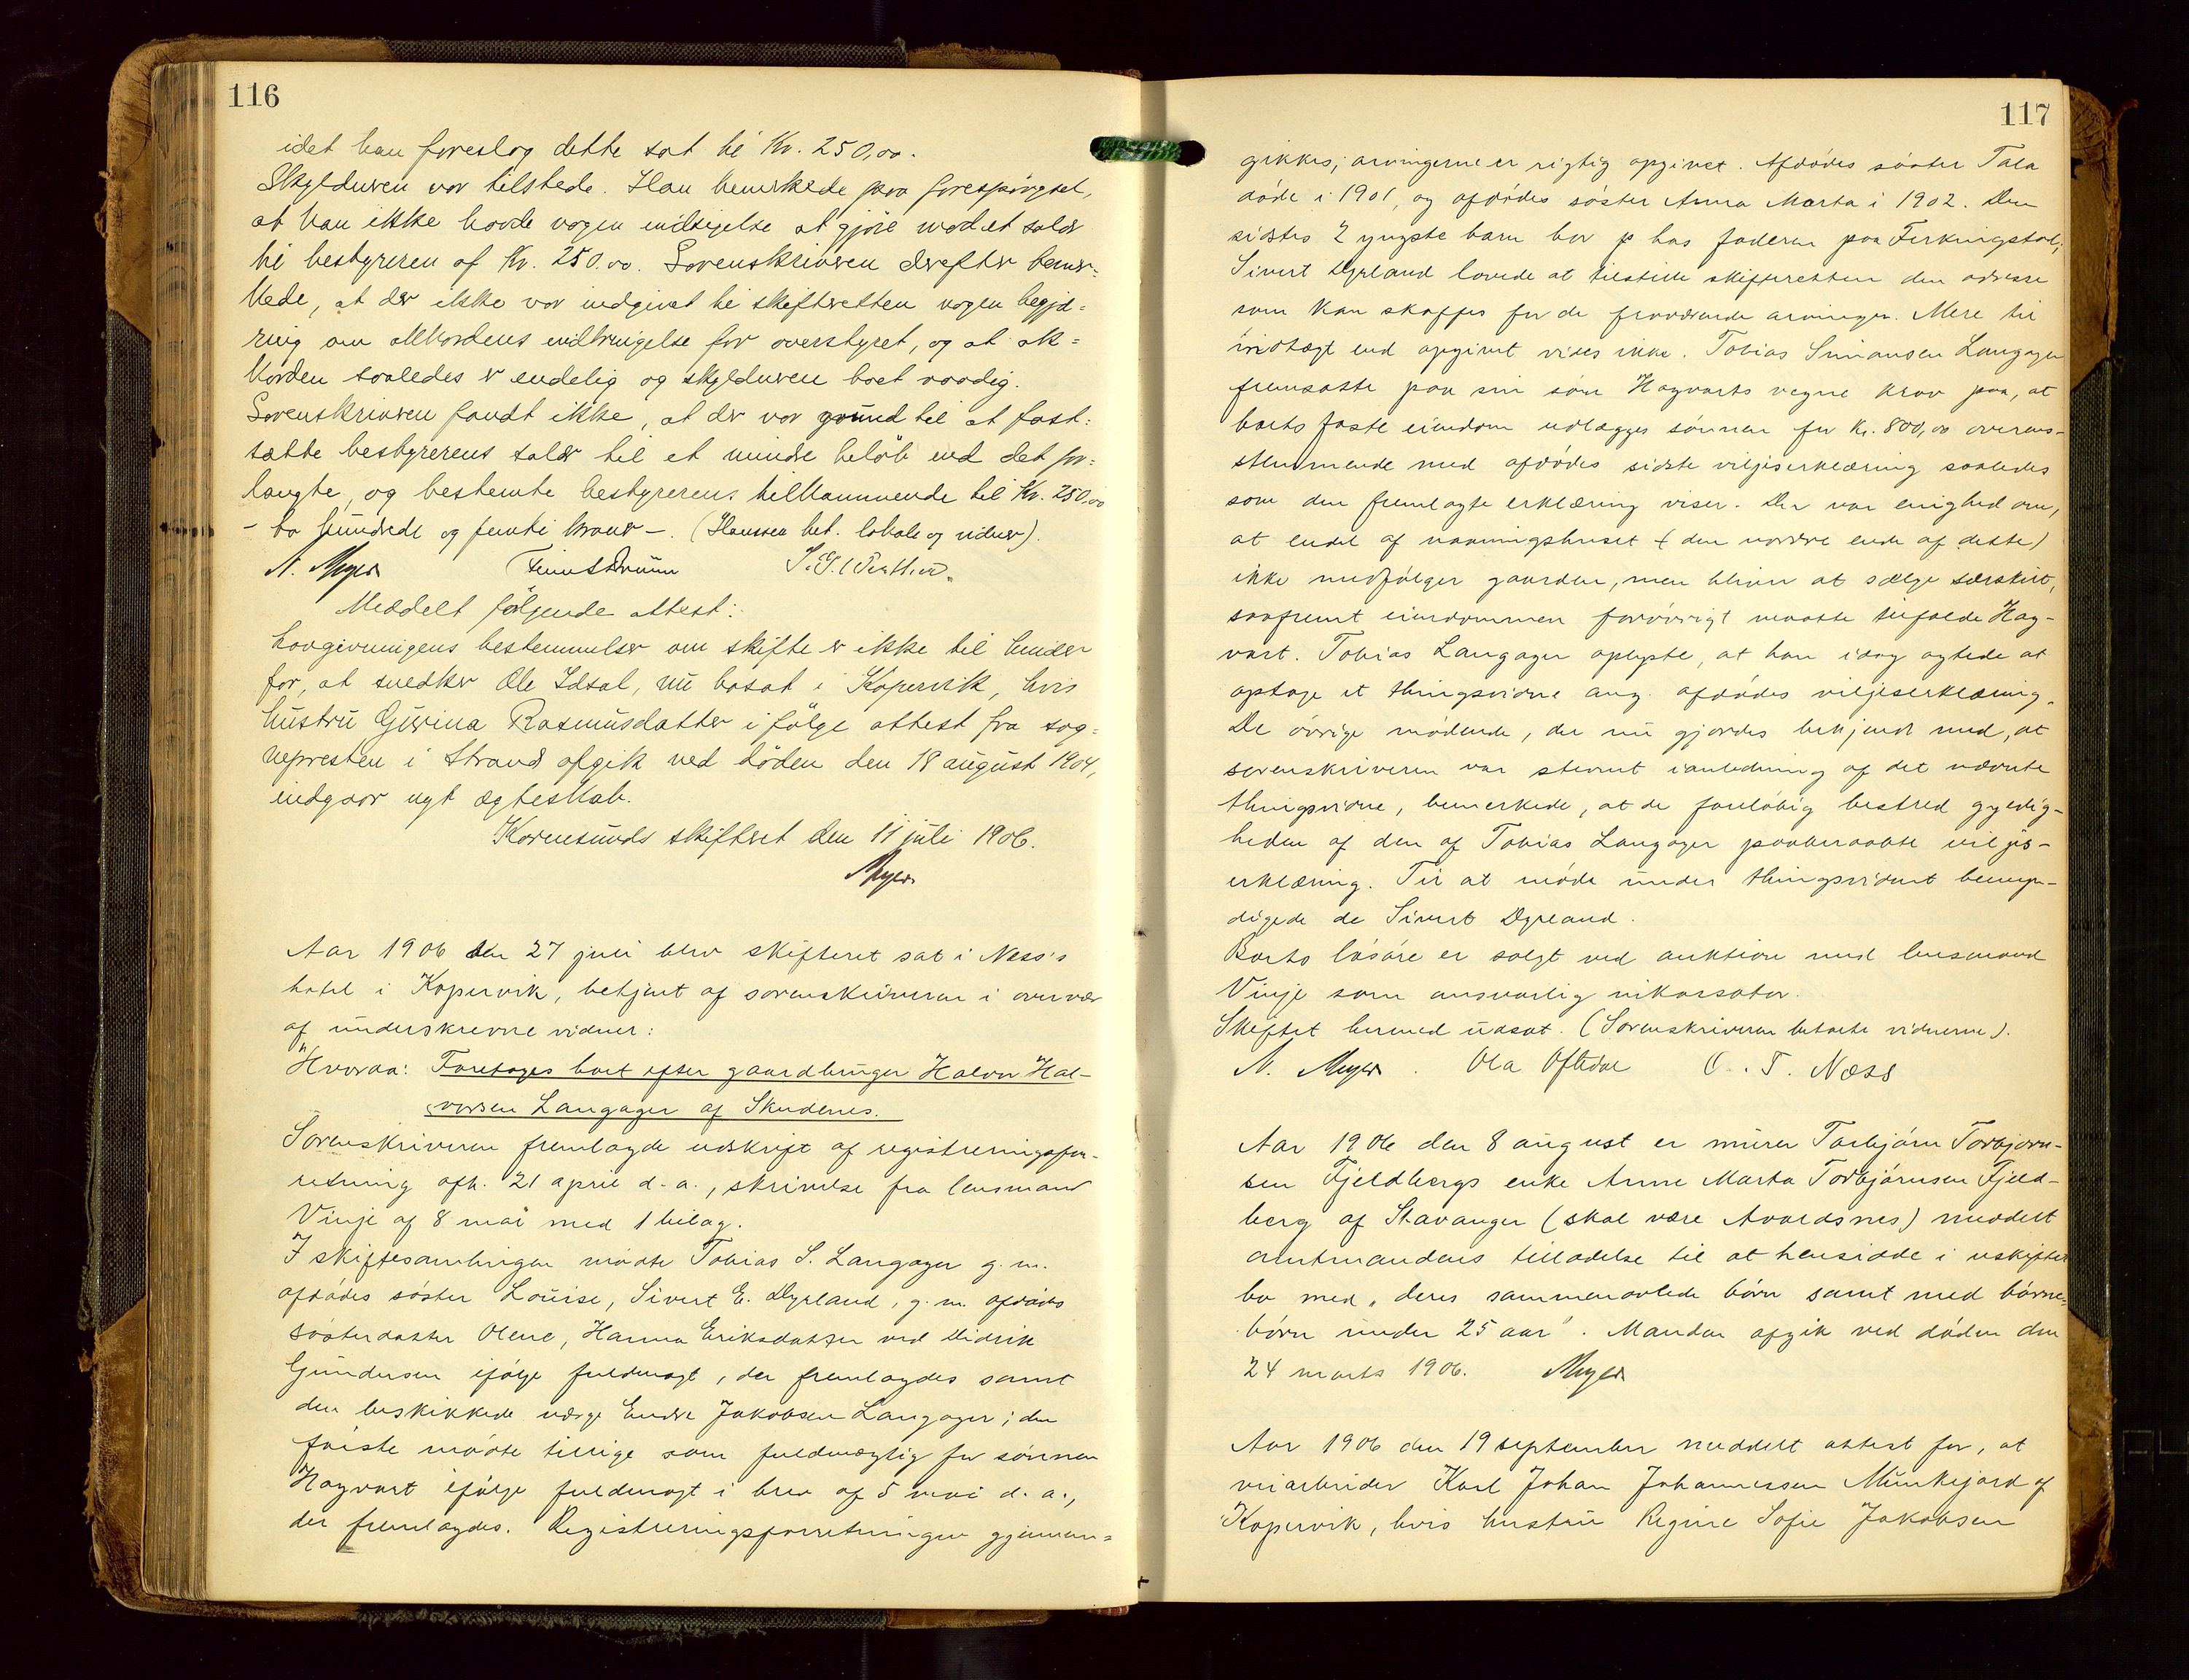 116
idet han foreslog dette sat til Kr. 250,00.
Skylderen var tilstede. Han bemerkede paa forespörgsel,
at han ikke havde nogen indsigelse at gjöre mod et salær
til bestyreren af Kr. 250.00. Sorenskriveren derefter bemer-
kede, at der ikke var indgivet til skifteretten nogen begjæ-
ring om akkordens indbringelse for overstyret, og at ak-
korden saaledes er endelig og skylderen boet raadig.
Sorenskriveren fandt ikke, at der var grund til at fast-
sætte bestyrerens salær til et mindre belöb end det for-
langte, og bestemte bestyrerens tilkommende til Kr. 250.00
- to hundrede og femti kroner -. (Hanssen bet. lokale og vidner).
N. Meyer
Meddelt fölgende attest:
Lovgivningens bestemmelser om skifte er ikke til hinder
for, at snedker Ole Idsal, nu bosat i Kopervik, hvis
hustru Gurina Rasmusdatter i fölge attest fra sog-
nepresten i Strand afgik ved döden den 18 august 1904,
indgaar nyt ægteskab.
Karmsunds skifteret den 11 juli 1906.
Meyer
Aar 1906 den 27 juli blev skifteret sat i Næss's
hotel i Kopervik, betjent af sorenskriveren i overvær
af underskrevne vidner:
Hvoraa: Foretages boet efter gaardbruger Halvor Hal-
vorsen Langager af Skudenes.
Sorenskriveren fremlagde udskrift af registreringsfor-
retning afh. 21 april d. a., skrivelse fra lensmand
Vinje af 8 mai med 1 bilag.
I skiftesamlingen mödte Tobias S. Langager g. m.
afdödes söster Louise, Sivert E. Dyrland, g. m. afdödes
sösterdatter Olene, Hanna Eriksdatter ved Didrik
Gundersen ifölge fuldmagt, der fremlagdes samt
den beskikkede værge Endre Jakobsen Langager; den
förste mödte tillige som fuldmægtig for sönnen
Hagvart ifölge fuldmagt i brev af 5 mai d. a.,
der fremlagdes. Registreringsforretningen gjennem-
117
gikkes; arvingerne er rigtig opgivet. Afdödes söster Tala
döde i 1901, og afdödes söster Anna Marta i 1902. Den
sidstes 2 yngste barn bor p hos faderen paa Ferkingstad;
Sivert Dyrland lovede at tilstille skifteretten den adresse
som kan skaffes for de fraværende arvinger. Mere til
indtægt end opgivet vides ikke. Tobias Simonsen Langager
fremsatte paa sin sön Hagvarts vegne krav paa, at
boets faste eiendom udlægges sönnen for Kr. 800,00 overens-
stemmende med afdödes sidste viljeserklæring saaledes
som den fremlagte erklæring viser. Der var enighed om,
at endel af vaaningshuset (den nordre ende af dette)
ikke medfölger gaarden, men bliver at sælge særskilt,
saafremt eiendommen forövrigt maatte tilfalde Hag-
vart. Tobias Langager oplyste, at han idag agtede at
optage et thingsvidne ang. afdödes viljeserklæring.
De övrige mödende, der nu gjordes bekjendt med, at
sorenskriveren var stevnt i anledning af det nævnte
thingsvidne, bemerkede, at de forelöbig bestred gyldig-
heden af den af Tobias Langager paaberaabte viljes-
erklæring. Til at möde under thingsvidnet bemyn-
digede de Sivert Dyrland.
Boets lösöre er solgt ved auktion med lensmand
Vinje som ansvarlig inkassator.
Skiftet hermed udsat. (Sorenskriveren betalte vidnerne).
N. Meyer. Ola Oftedal O. T. Næss
Aar 1906 den 8 august er murer Torbjörn Torbjörn-
sen Fjeldbergs enke Anne Marta Torbjörnsen Fjeld-
berg af Stavanger (skal være Avaldsnes) meddelt
amtmandens tilladelse til at hensidde i uskiftet
bo med "deres sammenavlede börn samt med börne-
börn under 25 aar". Manden afgik ved döden den
24 marts 1906. Meyer
Aar 1906 den 19 september meddelt attest for, at
veiarbeider Karl Johan Johannessen Munkejord af
Kopervik, hvis hustru Regine Sofie Jakobsen